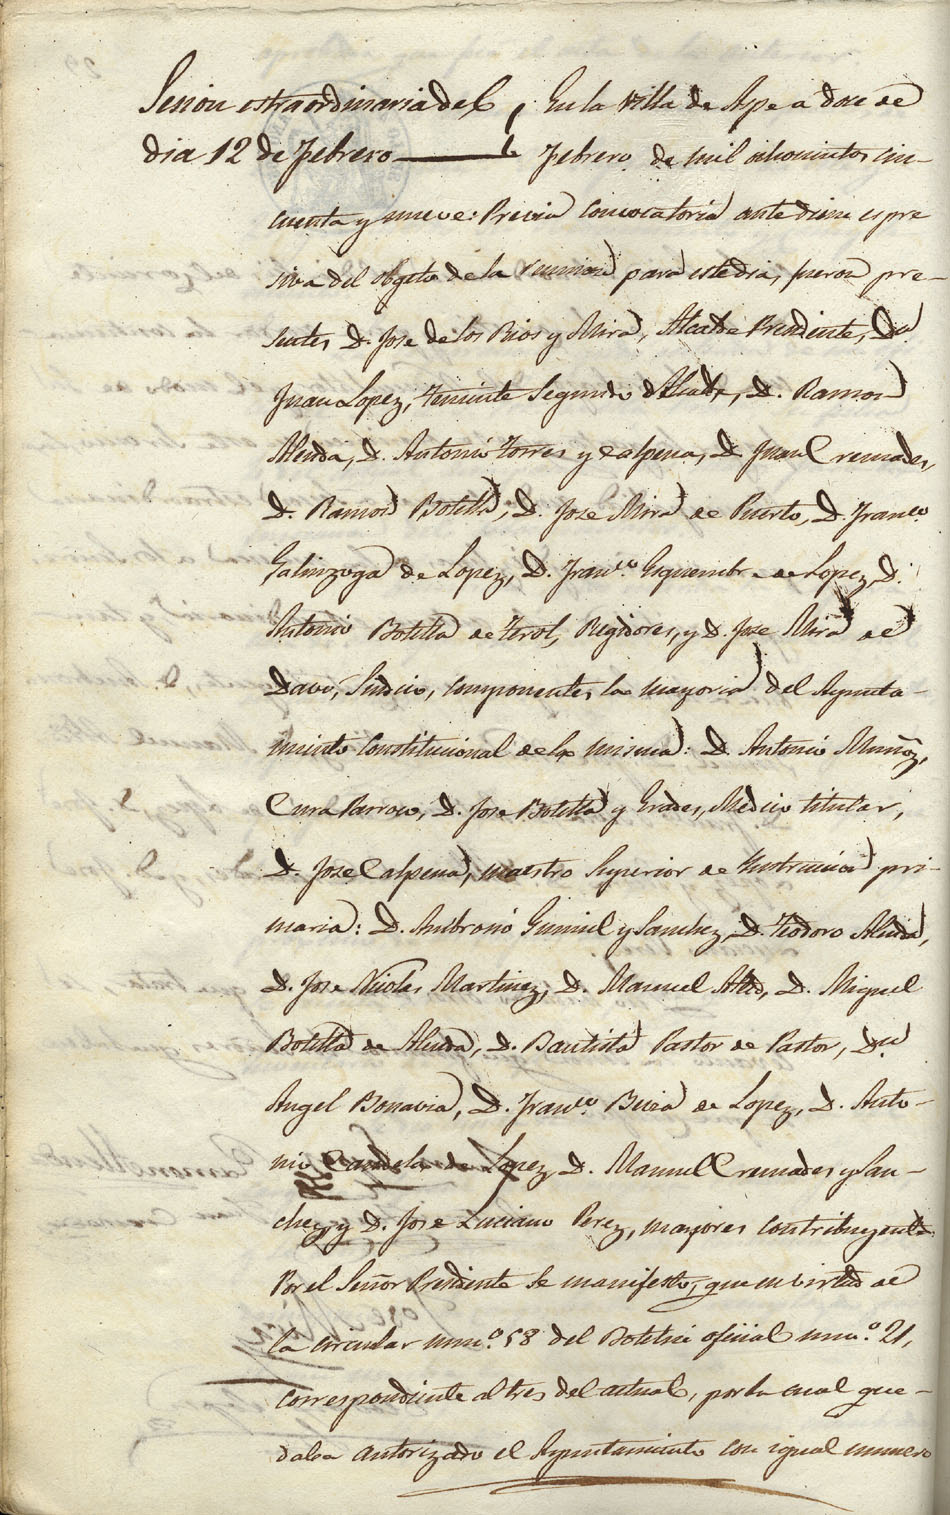 Sesion estraordinaria del
dia 12 de Febrero
En la Villa de Aspe a doce de
Febrero de mil ochocientos cin-
cuenta y nueve: Previa convocatoria ante diem espre
siva del objeto de la reunion para este dia, fueron pre-
sentes D. Jose de los Rios y Mira, Alcalde Presidente, Dn
Juan Lopez, teniente Segundo de Alcalde, D. Ramon
Alenda, D. Antonio Torres y Calpena, D. Juan Cremades,
D. Ramon Botella, D. Jose Mira de Puerto, D. Franco.
Galinzoga de Lopez, D. Franco. Gisquembre de Lopez, D.
Antonio Botella de Terol, Regidores, y D. Jose Mira de
Davo, Sindico, componentes la mayoria del Ayunta-
miento Constitucional de la misma: D. Antonio Muñoz,
Cura Parroco, D. Jose Botella y Grades, Medico titular,
D. Jose Calpena, maestro Superior de Instruccion pri-
maria: D. Ambrosio Gumiel y Sanchez, D. Teodoro Alenda,
D. Jose Nicolas Martinez, D. Manuel D. Miguel
Botella de Alenda, D. Bautista Pastor de Pastor, Dn
Angel Bonavia, D. Franco. de Lopez, D. Anto-
nio Candela de Lopez, D. Manuel Cremades y San-
chez, y D. Jose Luciano Perez, mayores contribuyentes.
Por el Señor Presidente se manifesto, que en virtud de
la circular numo. 58 del Boletin oficial numo. 21,
correspondiente al tres del actual, por la cual que-
daba autorizado el Ayuntamiento con igual numero